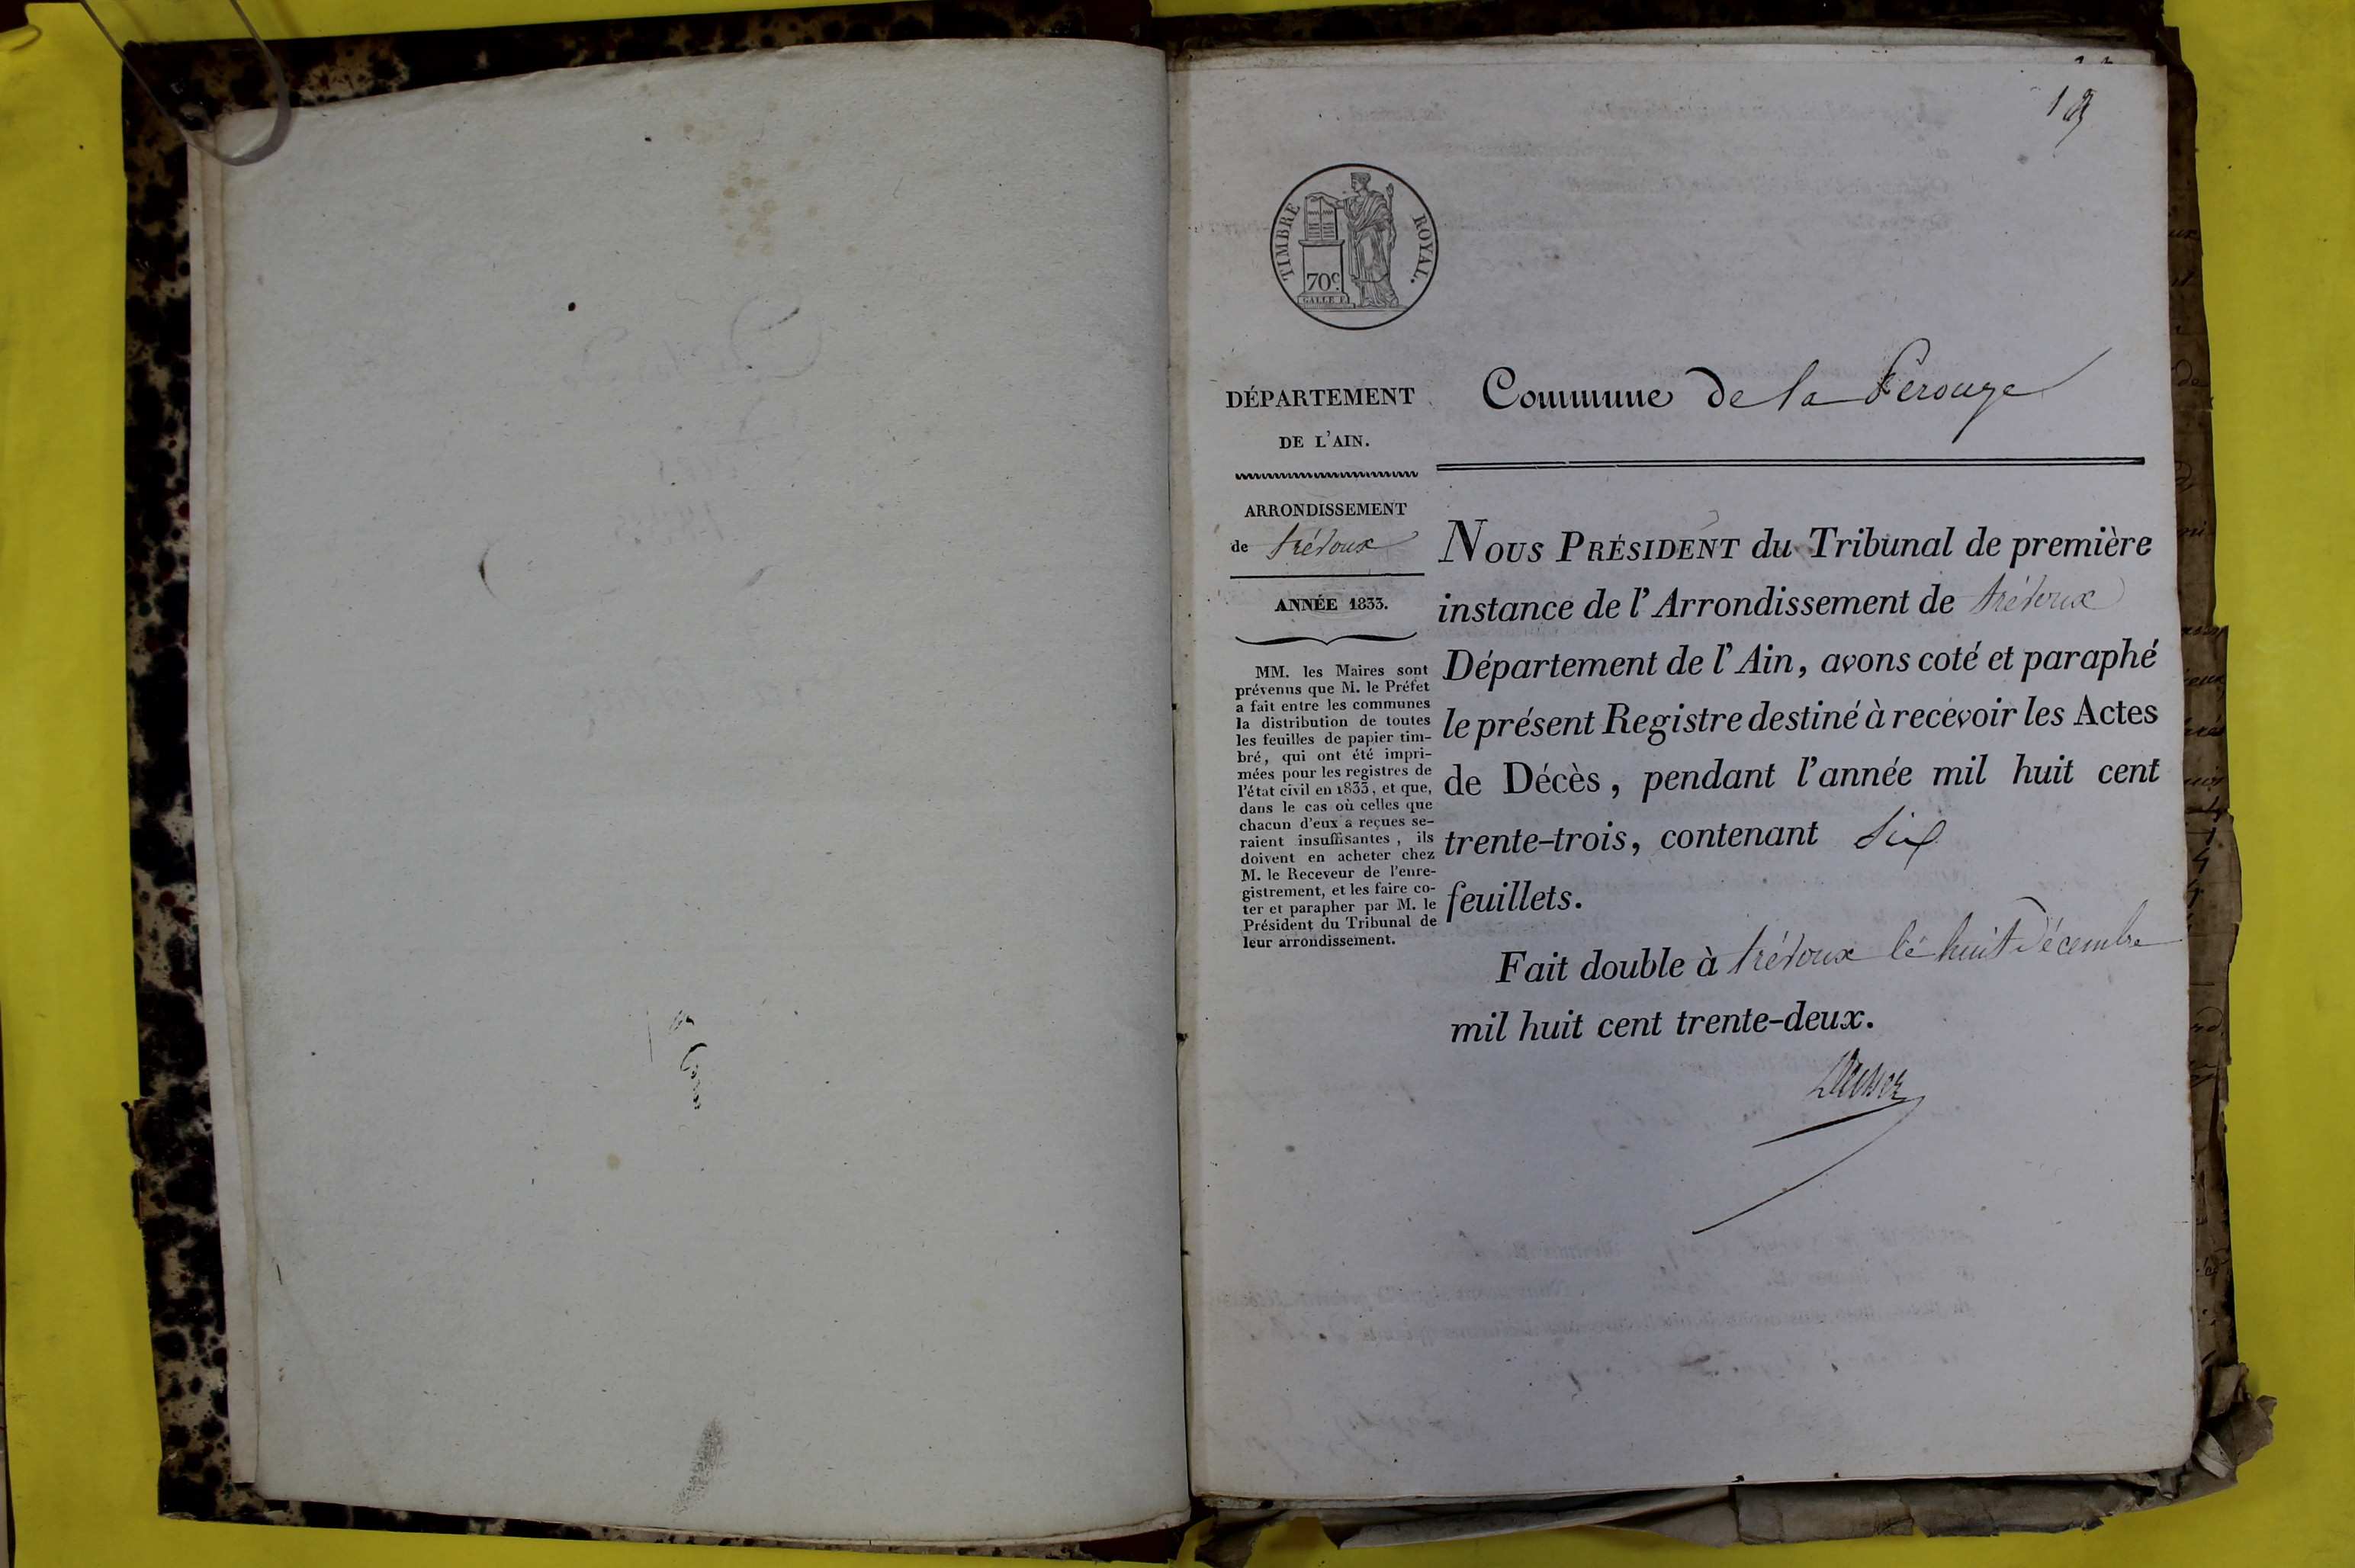 TIMBRE ROYAL.
70c.
GALLE F.
Commune de la Perouze
DÉPARTEMENT
DE L'AIN.
ARRONDISSEMENT
de trévoux
ANNÉE 1833.
MM. les Maires sont
prévenus que M. le Préfet
a fait entre les communes
la distribution de toutes
les feuilles de papier tim-
bré, qui ont été impri-
mées pour les registres de
l'état civil en 1833, et que,
dans le cas où celles que
chacun d'eux a reçues se-
raient insuffisantes, ils
doivent en acheter chez
M. le Receveur de l'enre-
gistrement, et les faire co-
ter et parapher par M. le
Président du Tribunal de
leur arrondissement.
NOUS PRÉSIDENT du Tribunal de première
instance de l'Arrondissement de trévoux
Département de l'Ain, avons coté et paraphé
le présent Registre destiné à recevoir les Actes
de Décès, pendant l'année mil huit cent
trente-trois, contenant six
feuillets.
Fait double à trévoux le huit Décembre
mil huit cent trente-deux.